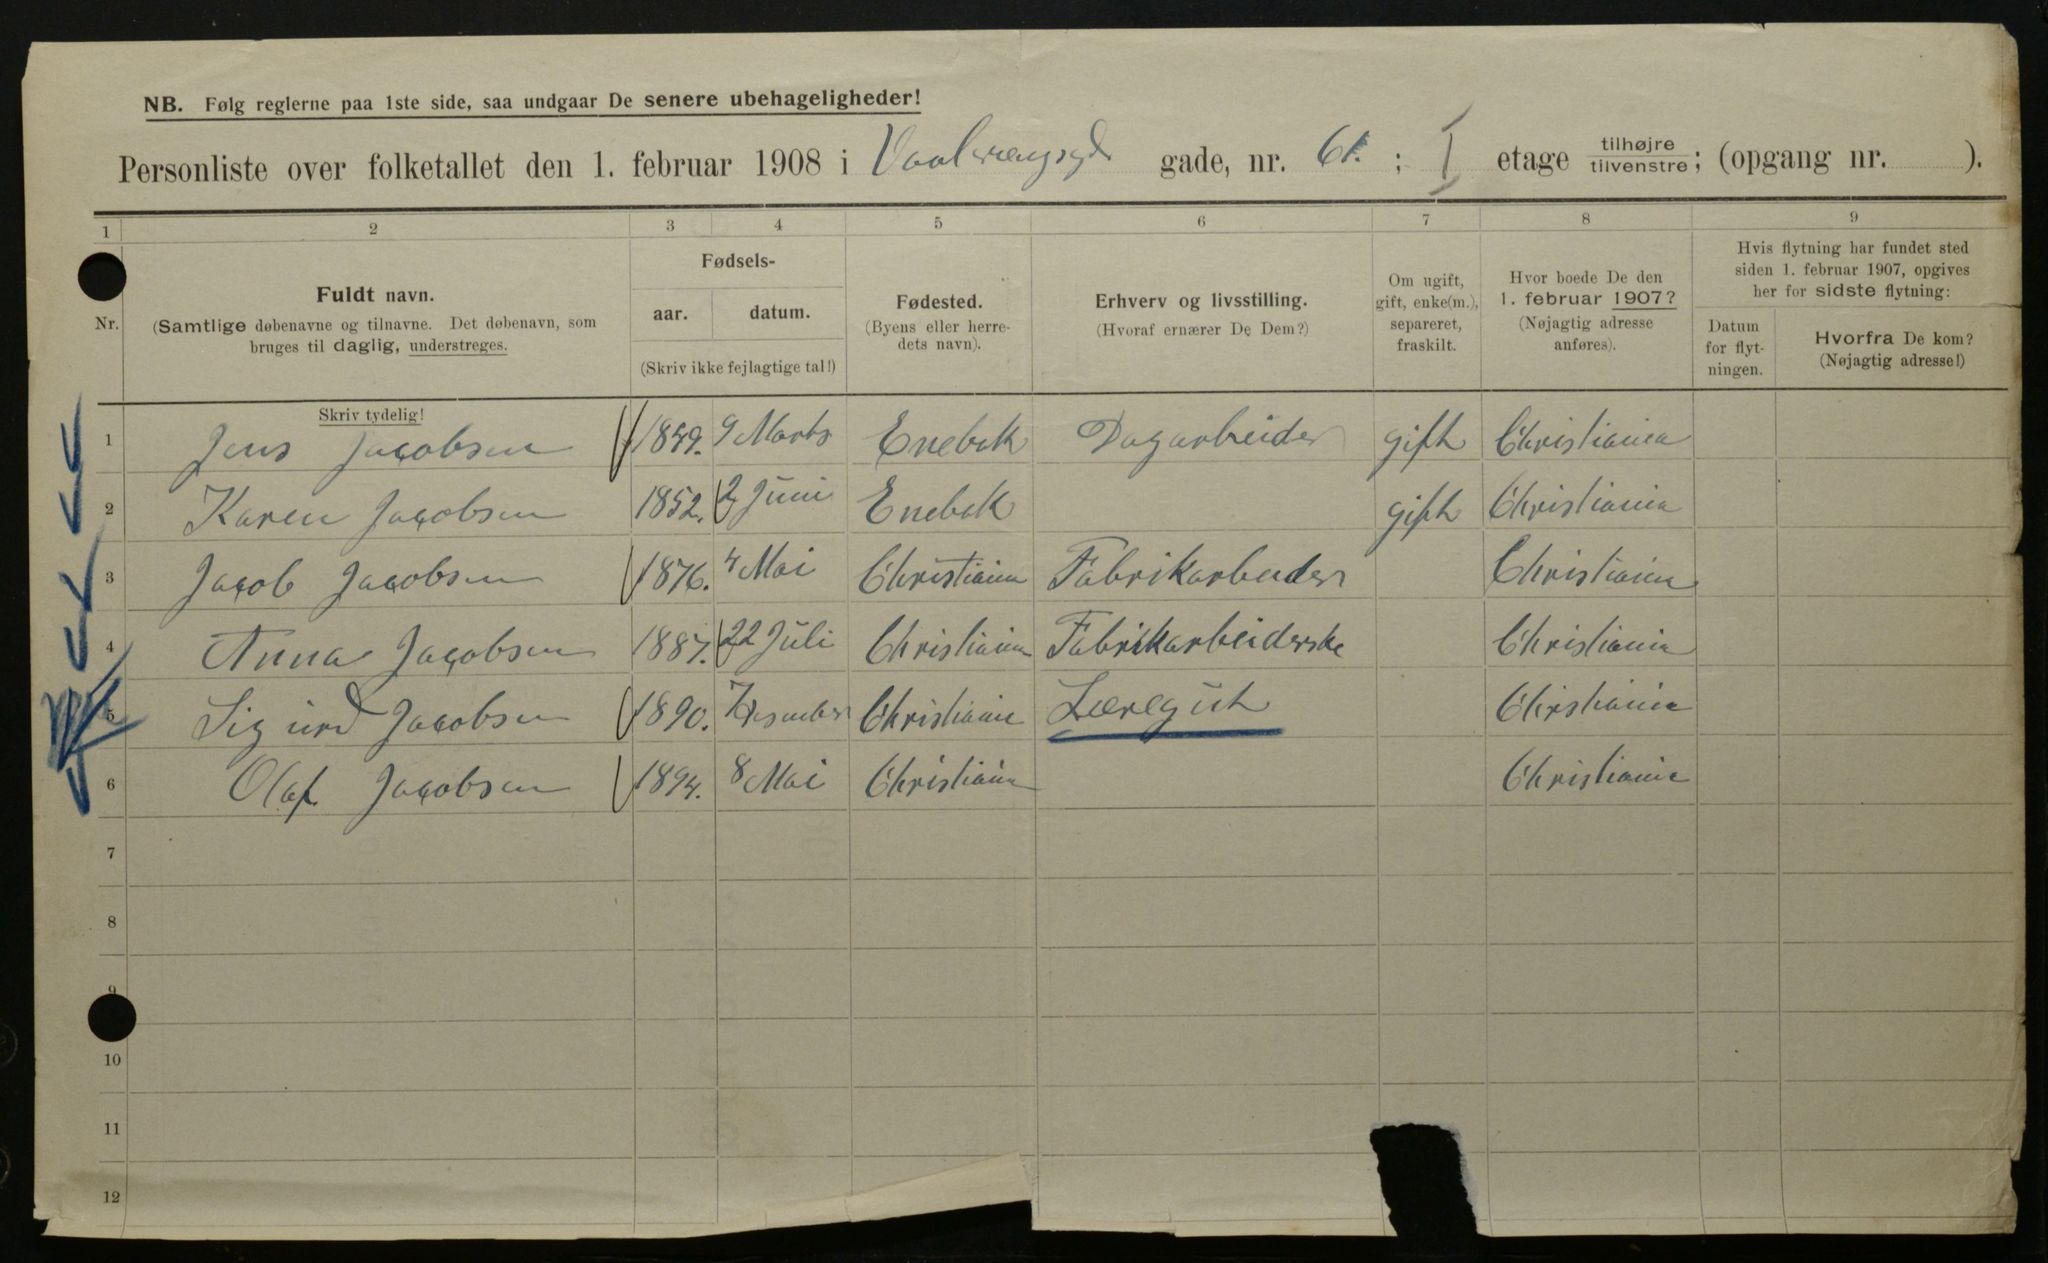 NB. Følg reglerne paa 1ste side, saa undgaar De senere ubehageligheder!
Personliste over folketallet den 1. februar 1908 i Vaalerengsgd gade, nr. 61. ; I etage tilhøjre tilvenstre; (opgang nr. ).
1 2 3 4 5 6 7 8 9
Nr.
Fuldt navn.
(Samtlige døbenavne og tilnavne. Det døbenavn, som
bruges til daglig, understreges.
Fødsels-
aar. datum.
(Skriv ikke fejlagtige tal!)
Fødested.
(Byens eller herre-
dets navn).
Erhverv og livsstilling.
(Hvoraf ernærer De Dem?)
Om ugift,
gift, enke(m.),
separeret,
fraskilt.
Hvor boede De den
1. februar 1907?
(Nøjagtig adresse
anføres).
Hvis flytning har fundet sted
siden 1. februar 1907, opgives
her for sidste flytning:
Datum
for flyt-
ningen.
Hvorfra De kom?
(Nøjagtig adresse!)
Skriv tydelig!
1 Jens Jacobsen 1849. 9 Marts Enebak Dagarbeider gift Christiania
2 Karen Jacobsen 1852. 2 Juni Enebak gift Christiania
3 Jacob Jacobsen 1876. 4 Mai Christiania Fabrikarbeider Christiania
4 Anna Jacobsen 1887. 22 Juli Christiania Fabrikarbeiderske Christiania
5 Sigurd Jacobsen 1890. Christiania Læregut Christiania
6 Olaf Jacobsen 1894. 8 Mai Christiania Christiania
7
8
9
10
11
12